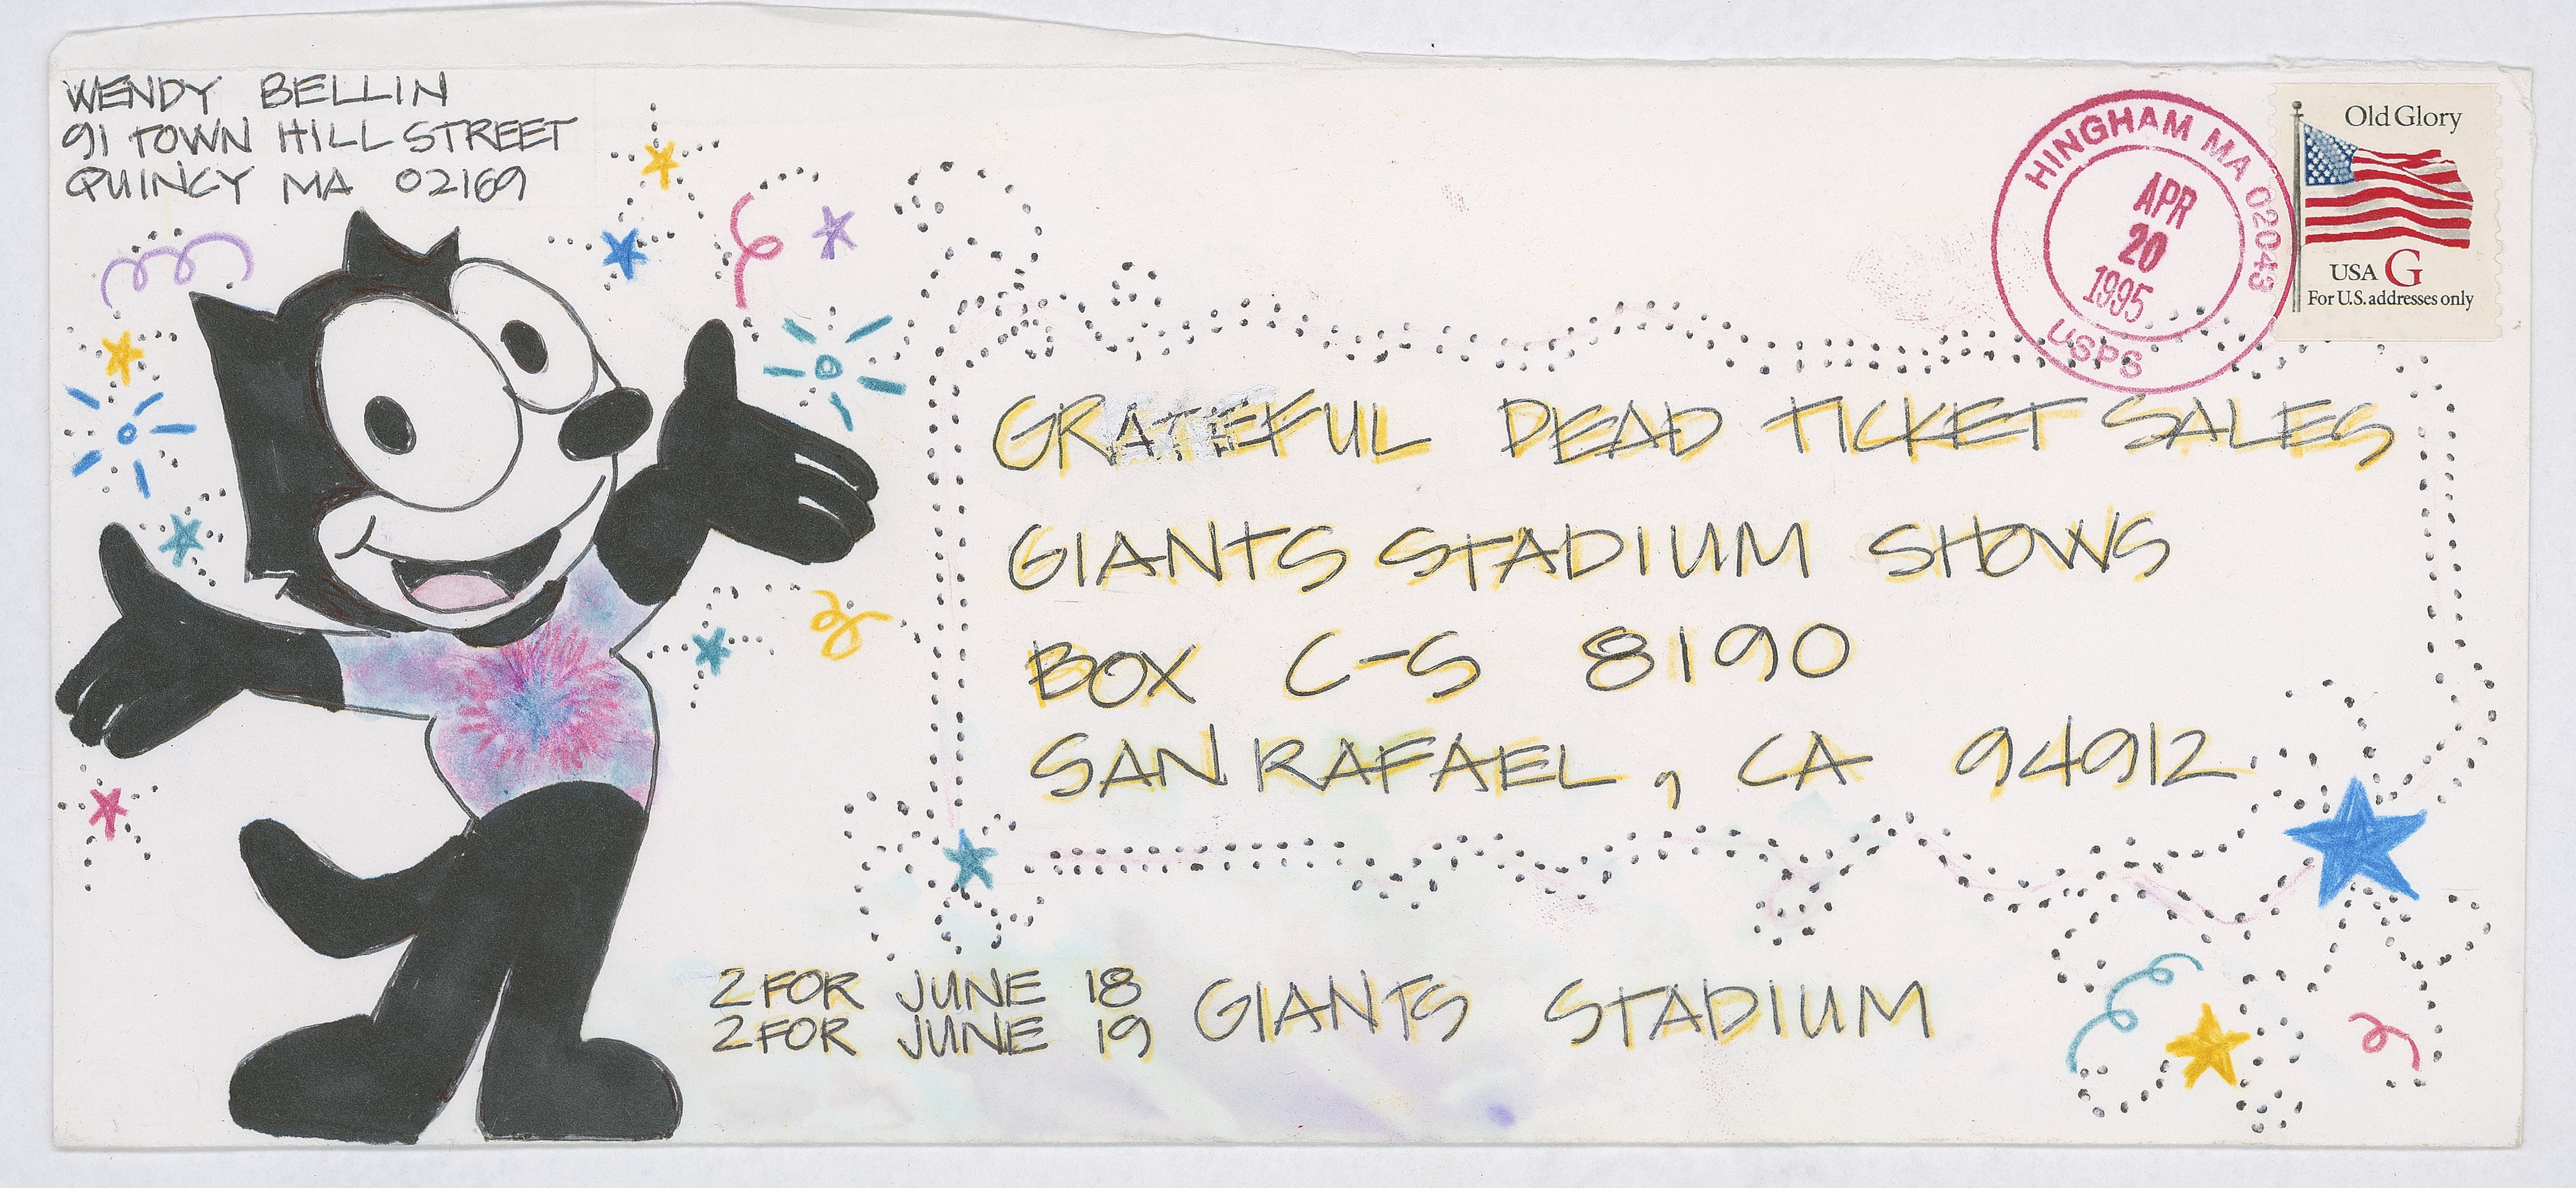 WENDY BELLIN
91 TOWN HILL STREET
QUINCY MA 02169
HINGHAM MA 02043
APR
20
1995
USPS
Old Glory
USA G
For U.S. addresses only
GRATEFUL DEAD TICKET SALES
GIANTS STADIUM SHOWS
BOX C-S 8190
SAN RAFAEL, CA 94912
2 FOR JUNE 18
2 FOR JUNE 19
GIANTS STADIUM